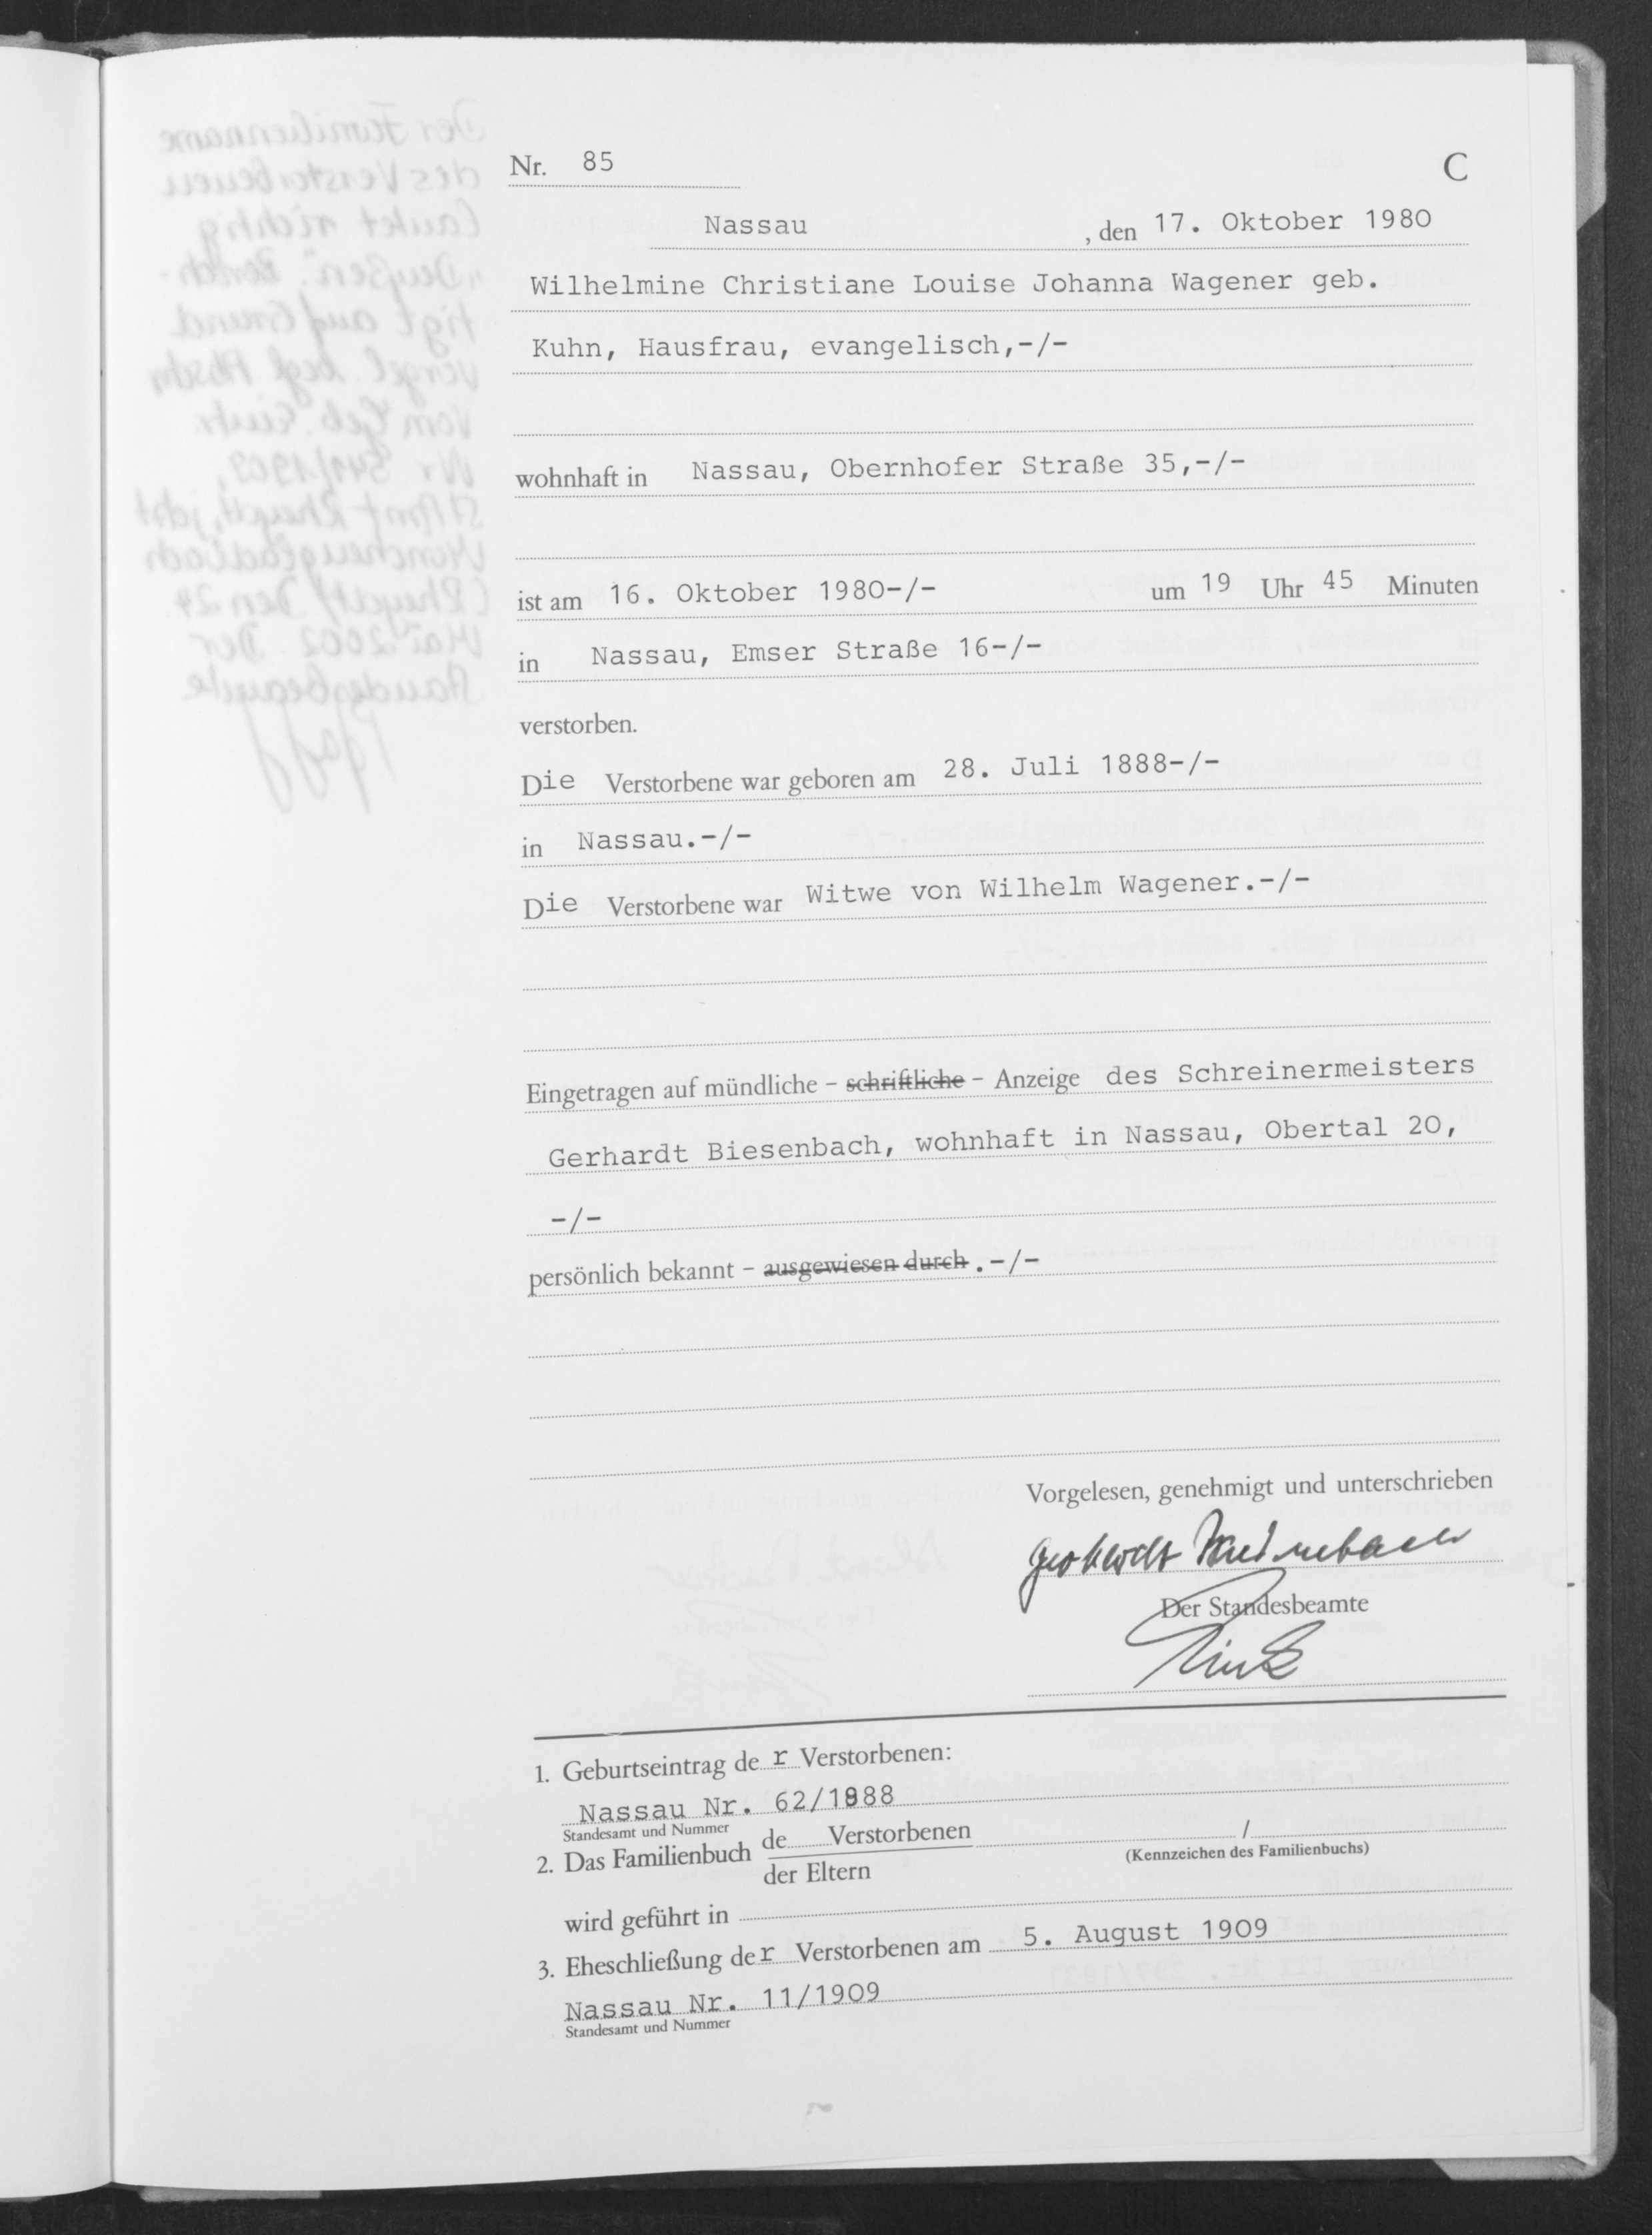 Nr. 85
C
Nassau , den 17. Oktober 1980
Wilhelmine Christiane Louise Johanna Wagener geb.
Kuhn, Hausfrau, evangelisch,-/-
wohnhaft in Nassau, Obernhofer Straße 35,-/-
ist am 16. Oktober 1980-/- um 19 Uhr 45 Minuten
in Nassau, Emser Straße 16-/-
verstorben.
Die Verstorbene war geboren am 28. Juli 1888-/-
in Nassau.-/-
Die Verstorbene war Witwe von Wilhelm Wagener.-/-
Eingetragen auf mündliche - schriftliche - Anzeige des Schreinermeisters
Gerhardt Biesenbach, wohnhaft in Nassau, Obertal 20,
-/-
persönlich bekannt - ausgewiesen durch.-/-
Vorgelesen, genehmigt und unterschrieben
Gerhardt Biesenbach
Der Standesbeamte
1. Geburtseintrag der Verstorbenen:
Nassau Nr. 62/1888
Standesamt und Nummer
2. Das Familienbuch de Verstorbenen /
der Eltern (Kennzeichen des Familienbuchs)
wird geführt in
3. Eheschließung der Verstorbenen am 5. August 1909
Nassau Nr. 11/1909
Standesamt und Nummer